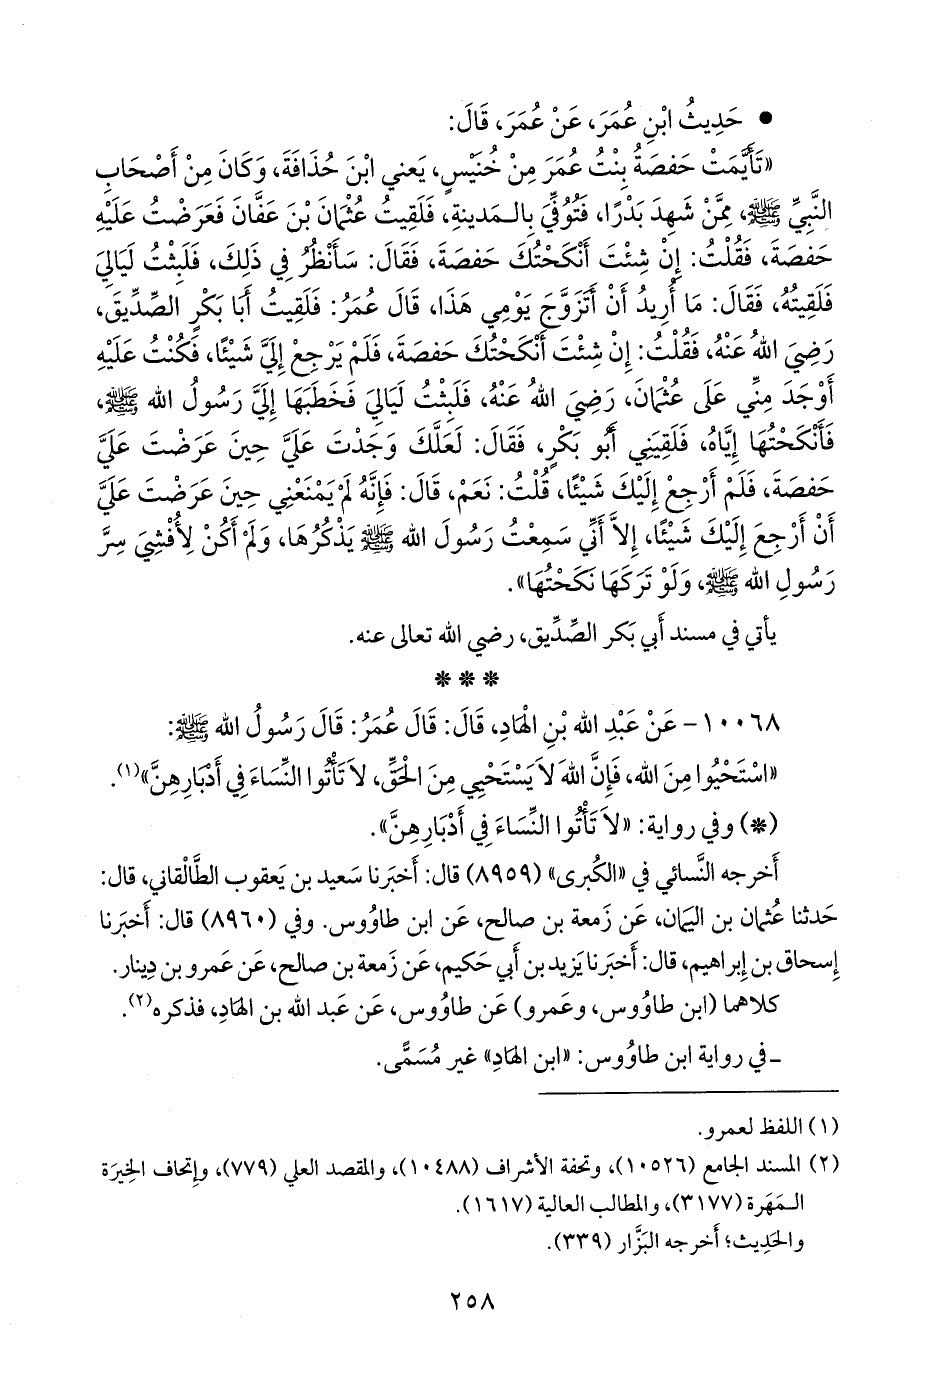 • حَدِيثُ ابْنِ عُمَرَ، عَنْ عُمَرَ، قَالَ:
«تَأَيَّمَتْ حَفصَةُ بِنْتُ عُمَرَ مِنْ خُنَيْسٍ، يَعني ابْنَ حُذَافَةَ، وَكَانَ مِنْ أَصْحَابِ
النَّبِيِّ ﷺ، مِمَّنْ شَهِدَ بَدْرًا، فَتُوُفِّيَ بِالـمَدينةِ، فَلَقِيتُ عُثْمَانَ بْنَ عَفَّانَ فَعَرَضْتُ عَلَيْهِ
حَفصَةَ، فَقُلْتُ: إِنْ شِئْتَ أَنْكَحْتُكَ حَفصَةَ، فَقَالَ: سَأَنْظُرُ فِي ذَلِكَ، فَلَبِثْتُ لَيَالِيَ
فَلَقِيتُهُ، فَقَالَ: مَا أُرِيدُ أَنْ أَتَزَوَّجَ يَوْمِي هَذَا، قَالَ عُمَرُ: فَلَقِيتُ أَبَا بَكْرٍ الصِّدِّيقَ،
رَضِيَ اللهُ عَنْهُ، فَقُلْتُ: إِنْ شِئْتَ أَنْكَحْتُكَ حَفصَةَ، فَلَمْ يَرْجِعْ إِلَيَّ شَيْئًا، فَكُنْتُ عَلَيْهِ
أَوْجَدَ مِنِّي عَلَى عُثْمَانَ، رَضِيَ اللهُ عَنْهُ، فَلَبِثْتُ لَيَالِيَ فَخَطَبَهَا إِلَيَّ رَسُولُ الله ﷺ،
فَأَنْكَحْتُهَا إِيَّاهُ، فَلَقِيَنِي أَبُو بَكْرٍ، فَقَالَ: لَعَلَّكَ وَجَدْتَ عَلَيَّ حِينَ عَرَضْتَ عَلَيَّ
حَفصَةَ، فَلَمْ أَرْجِعْ إِلَيْكَ شَيْئًا، قُلْتُ: نَعَمْ، قَالَ: فَإِنَّهُ لَمْ يَمْنَعْنِي حِينَ عَرَضْتَ عَلَيَّ
أَنْ أَرْجِعَ إِلَيْكَ شَيْئًا، إِلاَّ أَنِّي سَمِعْتُ رَسُولَ الله ﷺ يَذْكُرُهَا، وَلَمْ أَكُنْ لِأُفْشِيَ سِرَّ
رَسُولِ الله ﷺ، وَلَوْ تَرَكَهَا نَكَحْتُهَا».
يأتي في مسند أَبي بَكر الصِّدِّيق، رضي الله تعالى عنه.
* * *
١٠٠٦٨- عَنْ عَبْدِ الله بْنِ الْهَادِ، قَالَ: قَالَ عُمَرُ: قَالَ رَسُولُ الله ﷺ:
«اسْتَحْيُوا مِنَ الله، فَإِنَّ اللهَ لاَ يَسْتَحْيِي مِنَ الْحَقِّ، لاَ تَأْتُوا النِّسَاءَ فِي أَدْبَارِهِنَّ»(١).
(*) وفي رواية: «لاَ تَأْتُوا النِّسَاءَ فِي أَدْبَارِهِنَّ».
أَخرجه النَّسائي في «الكُبرى» (٨٩٥٩) قال: أَخبَرنا سَعيد بن يَعقوب الطَّالْقاني، قال:
حَدثنا عُثمان بن اليَمان، عَن زَمعة بن صالح، عَن ابن طاوُوس. وفي (٨٩٦٠) قال: أَخبَرنا
إِسحاق بن إِبراهيم، قال: أَخبَرنا يَزيد بن أَبي حَكيم، عَن زَمعة بن صالح، عَن عَمرو بن دِينار.
كلاهما (ابن طاوُوس، وعَمرو) عَن طاوُوس، عَن عَبد الله بن الهَادِ، فذكره(٢).
ـ في رواية ابن طاوُوس: «ابن الهَادِ» غير مُسَمًّى.
(١) اللفظ لعمرو.
(٢) المسند الجامع (١٠٥٢٦)، وتحفة الأشراف (١٠٤٨٨)، والمقصد العلي (٧٧٩)، وإتحاف الخِيرَة
الـمَهَرة (٣١٧٧)، والمطالب العالية (١٦١٧).
والحَدِيث؛ أَخرجه البَزَّار (٣٣٩).
٢٥٨